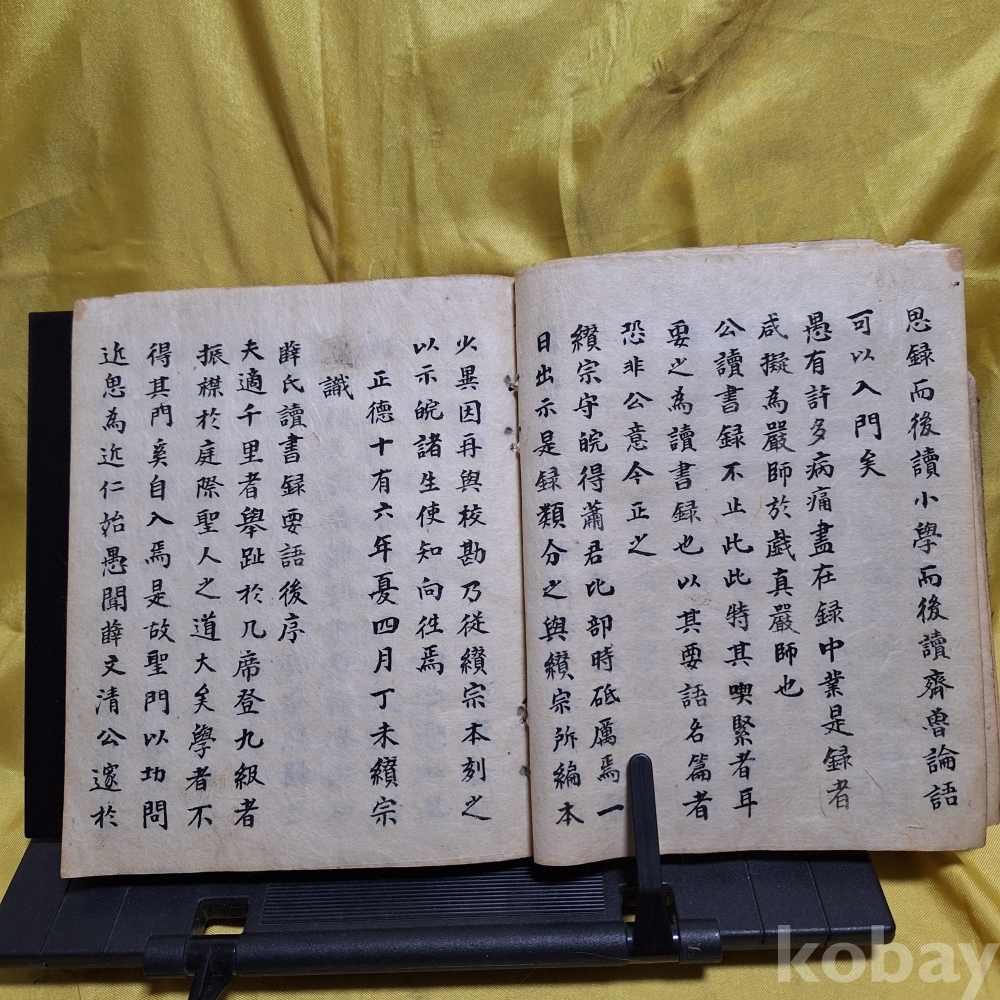 思録而後讀小學而後讀齊魯論語
可以入門矣
愚有許多病痛盡在録中業是録者
咸擬為嚴師於戱真嚴師也
公讀書録不止此此特其喫緊者耳
要之為讀書録也以其要語名篇者
恐非公意今正之
纘宗守皖得蕭君比部時砥厲焉一
日出示是録類分之與纘宗所編本
少異因再與校勘乃従纘宗本刻之
以示皖諸生使知向徃焉
正德十有六年夏四月丁未纘宗
識
薛氏讀書録要語後序
夫適千里者舉趾於几席登九級者
振襟於庭際聖人之道大矣學者不
得其門奚自入焉是故聖門以切問
近思為近仁始愚聞薛文清公邃於
kobay